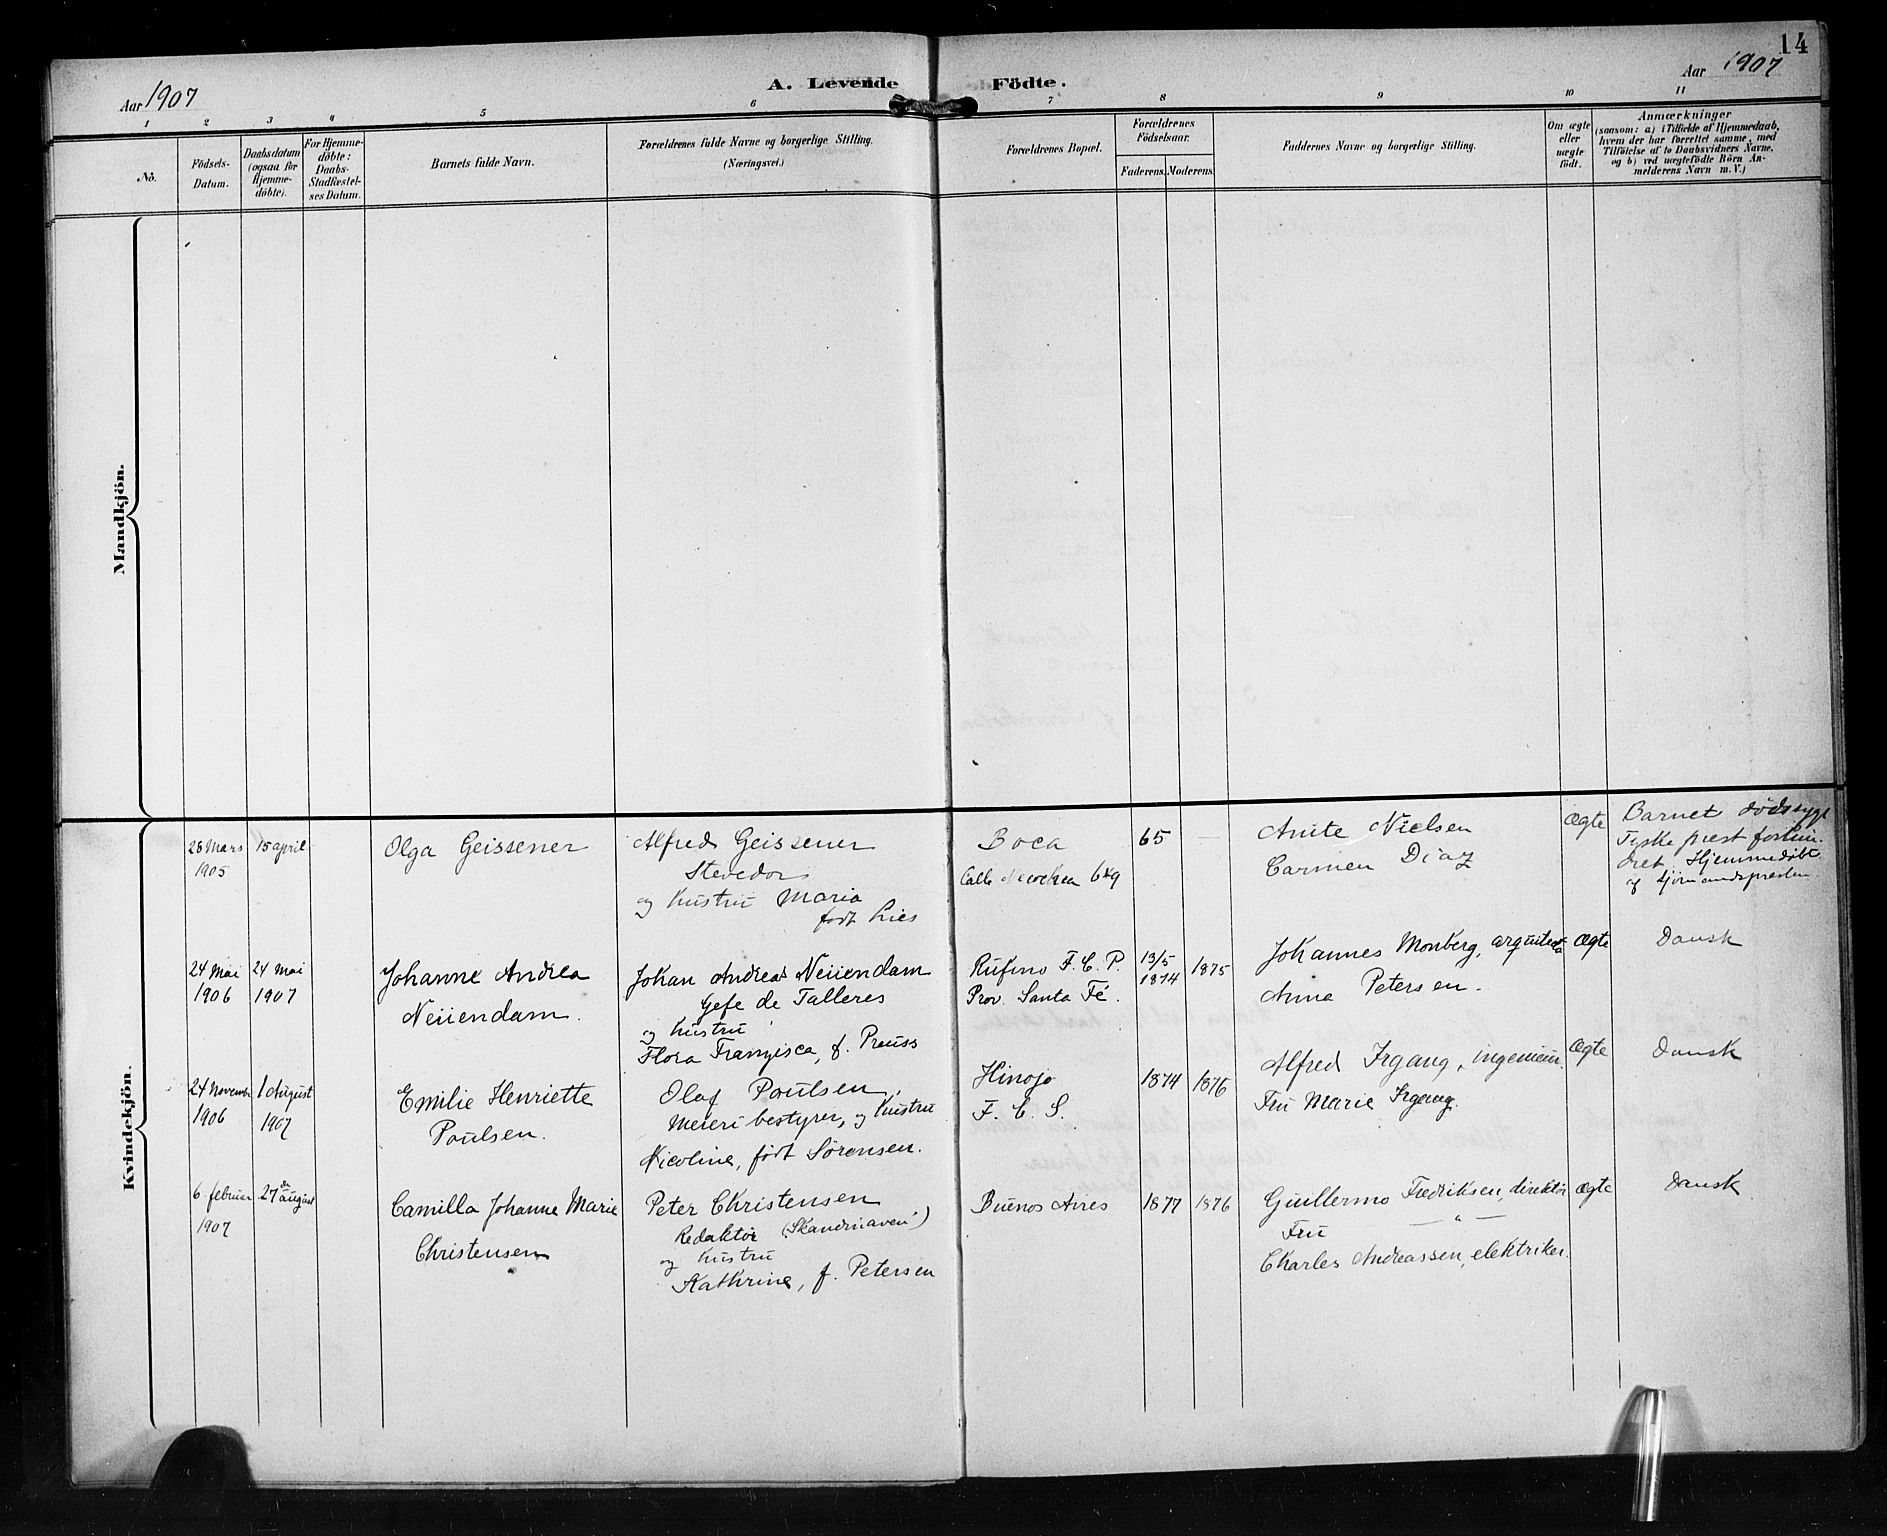 14
Aar 1907
A. Levende Födte.
Aar 1907
1 2 3 4 5 6 7 8 9 10 11
No.
Födsels-
Datum.
Daabsdatum
(ogsaa for
Hjemme-
döbte).
For Hjemme-
döbte:
Daabs-
Stadfæstel-
ses Datum.
Barnets fulde Navn.
Forældrenes fulde Navne og borgerlige Stilling.
(Næringsvei.)
Forældrenes Bopæl.
Forældrenes
Födselsaar.
Faderens. Moderens.
Faddernes Navne og borgerlige Stilling.
Om ægte
eller
uægte
födt.
Anmærkninger
(saasom: a) i Tilfælde af Hjemmedaab,
hvem der har forrettet samme, med
Tilföielse af to Daabsvidners Navne,
og b) ved uægtefödte Börn An-
melderens Navn m. V.)
Mandkjön.
Kvindekjön.
28 Mars
1905
15 april
Olga Geissener
Alfred Geissener
Stevedor
og hustru Maria
født Lies
Boca
Calle 649
65
Anite Nielsen
Carmen Diaz
Ægte
Barnet dødssygt
Tyske prest forhin-
dret. Hjemmedøbt
af sjømandspresten
24 Mai
1906
24 Mai
1907
Johanne Andrea
Neiiendam.
Johan Andreas Neiiendam
Gefe de Talleres
og hustru
Flora Franzisca, f. Preuss
Rufino F. C. P.
Prov. Santa Fé.
13/5
1874
1875
Johannes Monberg, arquitecto
Anne Petersen.
Ægte
Dansk
24 November
1906
1 August
1907
Emilie Henriette
Poulsen.
Olaf Poulsen,
Meieribestyrer, og hustru
Nicoline, født Sørensen.
Hinojo
F. C. S.
1874
1876
Alfred Irgang, ingeniør.
Fru Marie Irgang.
Ægte
Dansk
6 februar
1907
27de august
Camilla Johanne Marie
Christensen
Peter Christensen
Redaktør (Skandinaven)
og hustru
Kathrine, f. Petersen
Buenos Aires
1877
1876
Guillermo Fredriksen, direktør
Fru — " —
Charles Andreassen, elektriker.
Ægte
Dansk.